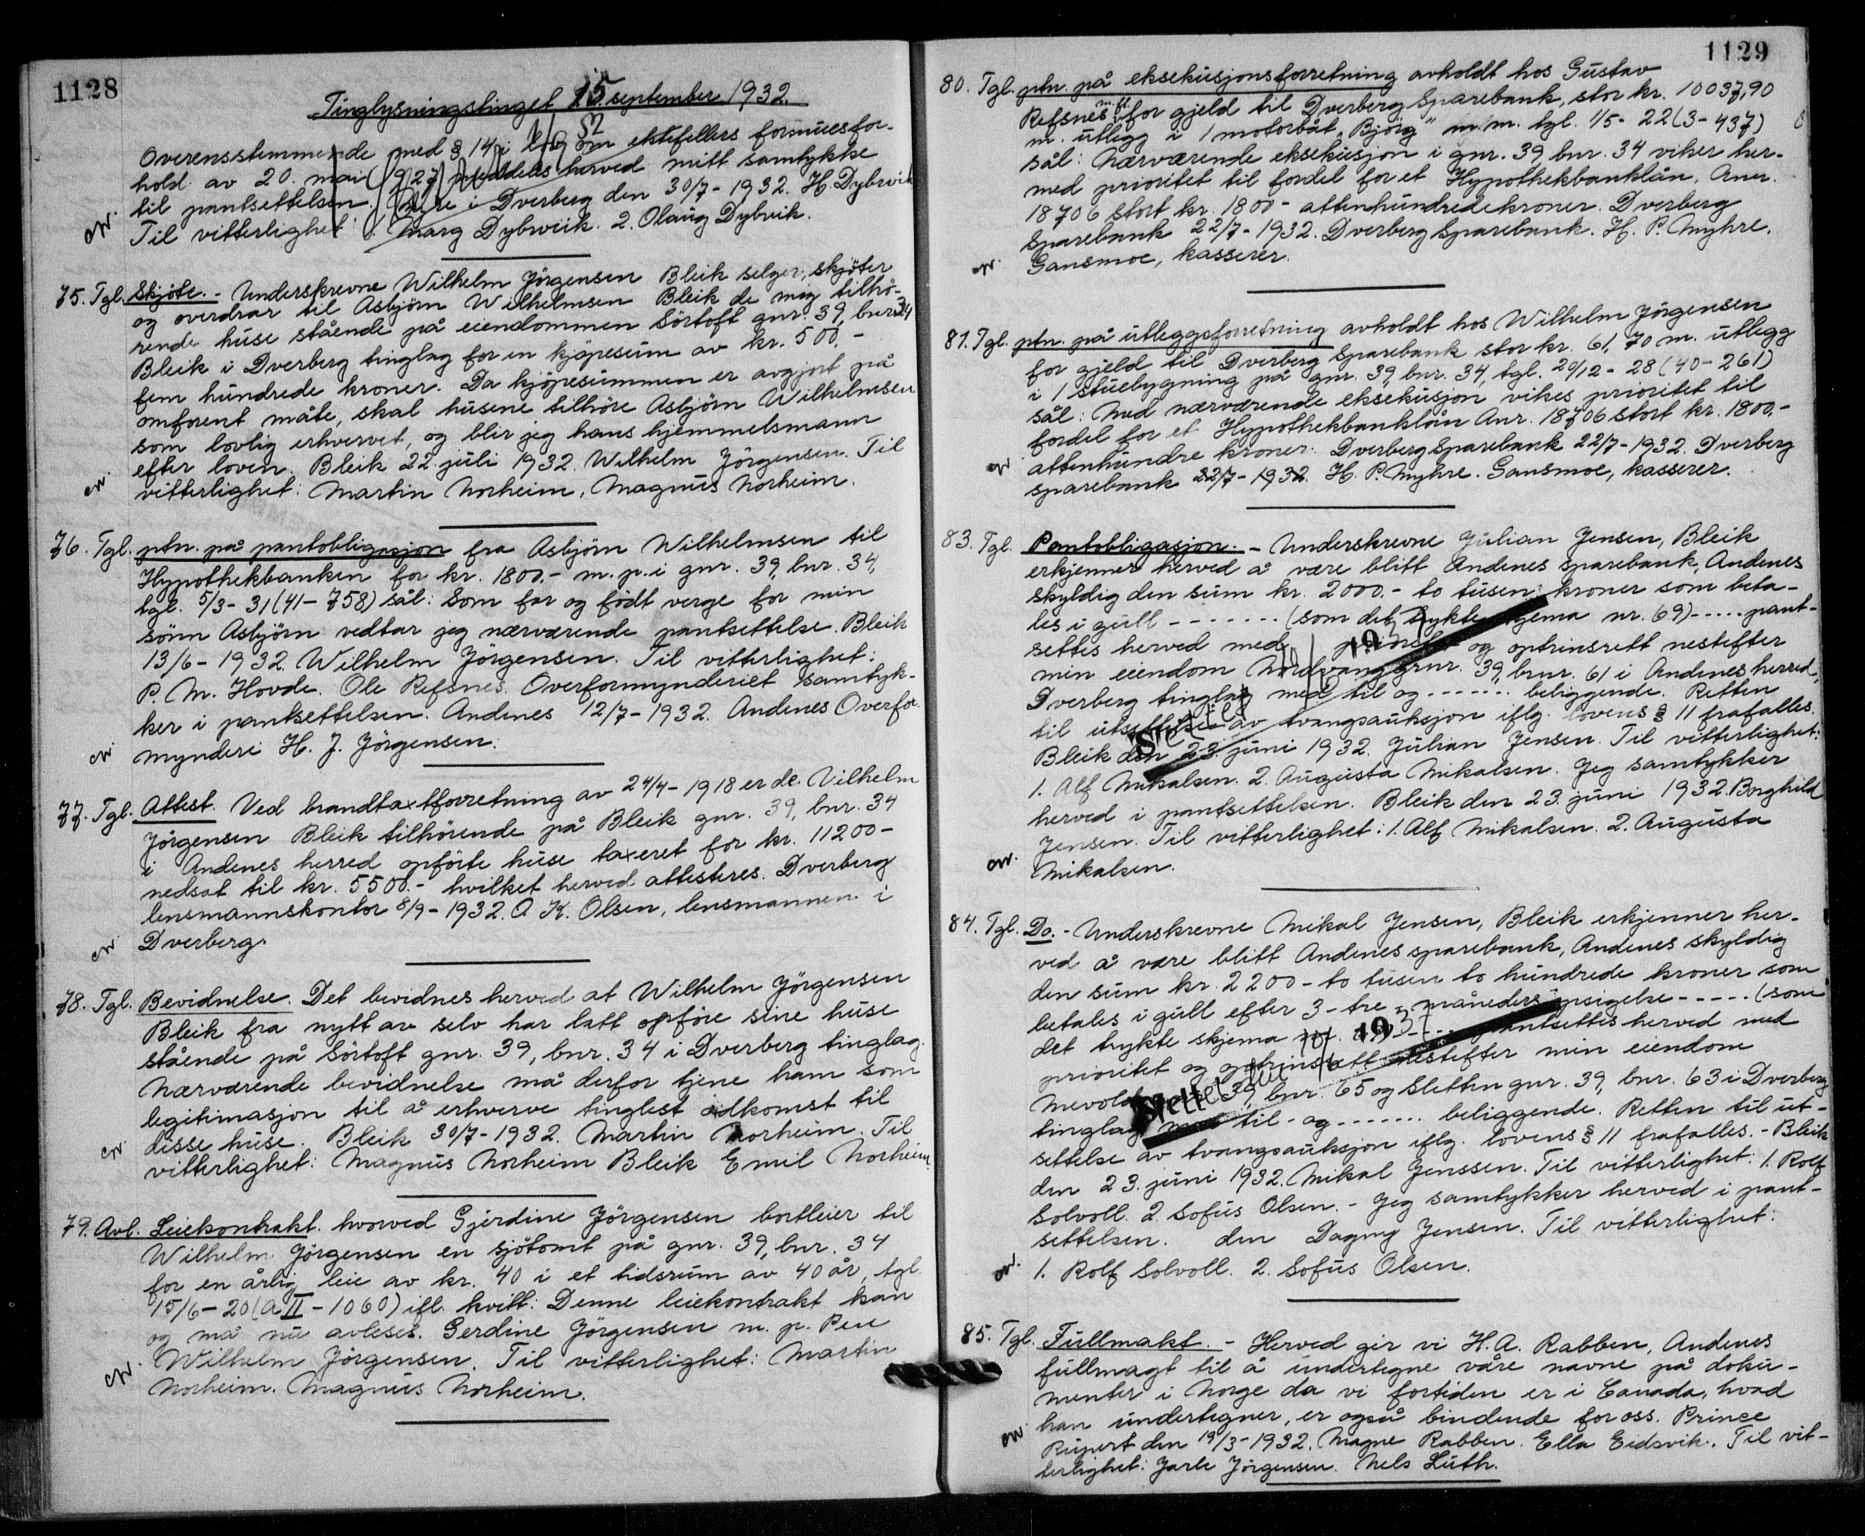 1128
Tinglysningstinget 15 september 1932.
Overensstemmende med § 14 i lov om ektefellers formuesfor-
hold av 20. mai 1927 meddeles herved mitt samtykke
til pantsettelsen. Åse i Dverberg den 30/7-1932. H Dybwik
Til vitterlighet: 1. Marg Dybwik. 2. Olaug Dybvik.
75. Tgl. Skjöte. - Underskrevne Wilhelm Jörgensen Bleik selger, skjöter
og overdrar til Asbjörn Wilhelmsen Bleik de mig tilhö-
rende huse stående på eiendommen Sörtoft gnr. 39, bnr 34
Bleik i Dverberg tinglag for en kjöpesum av kr. 500,-
fem hundrede kroner. Da kjöpesummen er avgjort på
omforent måte, skal husene tilhöre Asbjörn Wilhelmsen
som lovlig erhvervet, og blir jeg hans hjemmelsmann
efter loven. Bleik 22 juli 1932. Wilhelm Jörgensen. Til
vitterlighet: Martin Norheim, Magnus Norheim.
76. Tgl. ptn. på pantobligasjon fra Asbjörn Wilhelmsen til
Hypothekbanken for kr. 1800.- m. p. i gnr. 39, bnr. 34,
tgl. 5/3-31 (41-758) sål: Som far og födt verge for min
sönn Asbjörn vedtar jeg nærværende pantsettelse. Bleik
13/6-1932. Wilhelm Jörgensen. Til vitterlighet:
P. M. Hovde. Ole Refsnes. Overformynderiet samtyk-
ker i pantsettelsen. Andenes 12/7-1932. Andenes Overfor-
mynderi H. J. Jörgensen.
77. Tgl. Attest. Ved brandtaxtforretning av 24/4-1918 er de Vilhelm
Jörgensen Bleik tilhörende på Bleik gnr. 39, bnr. 34
i Andenes herred opförte huse taxeret for kr. 11200-
nedsat til kr. 5500.- hvilket herved attesteres. Dverberg
lensmannskontor 8/9-1932. O K. Olsen, lensmannen i
Dverberg.
78. Tgl. Bevidnelse. Det bevidnes herved at Wilhelm Jörgensen
Bleik fra nytt av selv har latt opföre sine huse
stående på Sörtoft gnr. 39, bnr. 34 i Dverberg tinglag.
Nærværende bevidnelse må derfor tjene ham som
legitimasjon til å erhverve tinglest adkomst til
disse huse. Bleik 30/7-1932. Martin Norheim. Til
vitterlighet: Magnus Norheim Bleik Emil Norheim
79. Avl. Leiekontrakt. hvorved Gjerdine Jörgensen bortleier til
Wilhelm Jörgensen en sjötomt på gnr. 39, bnr. 34
for en årlig leie av kr. 40 i et tidsrum av 40 år, tgl.
15/6-20 (A II-1060) ifl. kvitt: Denne leiekontrakt kan
og må nu avleses. Gerdine Jörgensen m. p. Pen
Wilhelm Jörgensen. Til vitterlighet: Martin
Norheim. Magnus Norheim.
1129
80. Tgl. ptn. på eksekusjonsforretning avholdt hos Gustav
Refsnes m. fl. for gjeld til Dverberg Sparebank, stor kr. 10037,90
m. utlegg i 1 motorbåt "Björg" m. m. tgl. 1/5-22 (3-437)
sål: Nærværende eksekusjon i gnr. 39 bnr. 34 viker her-
med prioritet til fordel for et Hypothekbanklån, Anr.
18706 stort kr. 1800- attenhundredekroner. Dverberg
Sparebank 22/7-1932. Dverberg Sparebank. H. P. Myhre.
Gansmoe, kasserer.
81. Tgl. ptn. på utleggsforretning avholdt hos Wilhelm Jörgensen
for gjeld til Dverberg Sparebank stor kr. 61,70 m. utlegg
i 1 stuebygning på gnr. 39, bnr. 34, tgl. 20/12-28 (40-261)
sål: Med nærværende eksekusjon vikes prioritet til
fordel for et Hypothekbanklån Anr. 18706 stort kr. 1800,-
attenhundre kroner. Dverberg Sparebank 22/7-1932. Dverberg
Sparebank 22/7-1932. H. P. Myhre. Gansmoe, kasserer.
83. Tgl. Pantobligasjon. - Underskrevne Julian Jensen, Bleik
erkjenner herved å være blitt Andenes Sparebank, Andenes
skyldig den sum kr. 2000.- to tusen kroner som beta-
les i gull - - - - - - - (som det trykte skjema nr. 69) - - - - pant-
settes herved med prioritet og optrinsrett nestefter
min eiendom Nordvang gnr. 39, bnr. 61 i Andenes herred,
Dverberg tinglag med til og - - - - - - beliggende. Retten
til utsettelse av tvangsauksjon iflg. lovens § 11 frafalles.
Bleik den 23. juni 1932. Julian Jensen. Til vitterlighet:
1. Alf Mikalsen. 2. Augusta Mikalsen. Jeg samtykker
herved i pantsettelsen. Bleik den 23. juni 1932. Borghild
Jensen. Til vitterlighet: 1. Alf Mikalsen. 2. Augusta
Mikalsen.
84. Tgl. Do. - Underskrevne Mikal Jensen, Bleik erkjenner her-
ved å være blitt Andenes sparebank, Andenes skyldig
den sum kr. 2200 - to tusen to hundrede kroner som
betales i gull efter 3 - tre - måneders opsigelse - - - - - (som
det trykte skjema nr. 69) - - - - pantsettes herved med
prioritet og optrinsrett nestefter min eiendom
Mevold gnr. 39, bnr. 65 og Sletten gnr. 39, bnr. 63 i Dverberg
tinglag med til- og - - - - - - beliggende. Retten til ut-
settelse av tvangsauksjon iflg. lovens § 11 frafalles. - Bleik
den 23. juni 1932. Mikal Jenssen. Til vitterlighet: 1. Rolf
Solvoll. 2. Sofus Olsen. - Jeg samtykker herved i pant-
settelsen. den Dagny Jensen. Til vitterlighet:
1. Rolf Solvoll. 2. Sofus Olsen.
85. Tgl. Fullmakt. - Herved gir vi H. A. Rabben, Andenes
fullmagt til å undertegne våre navne på doku-
menter i Norge da vi fortiden er i Canada, hvad
han undertegner, er også bindende for oss. Prince
Rupert den 19/3-1932. Magne Rabben. Ella Eidsvik. Til vit-
terlighet: Jarle Jörgensen. Nels Luth.